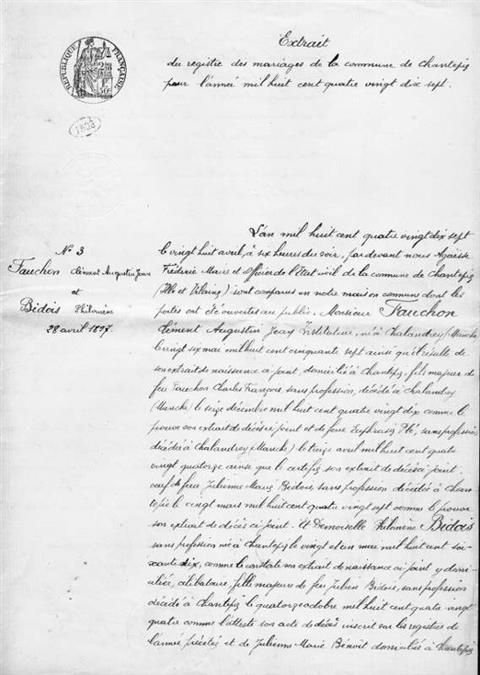 RÉPUBLIQUE FRANÇAISE
1898
Extrait
du registre des mariages de la commune de Chantepie
pour l'année mil huit cent quatre vingt dix sept.
N° 3
Fauchon Clément Augustin Jean
et
Bidois Philomène
28 avril 1897.
L'an mil huit cent quatre vingt dix sept
le vingt huit avril à six heures du soir, par devant nous
Frédéric Marie et Officier de l'Etat civil de la commune de Chantepie
(Ille et Vilaine) sont comparus en notre maison commune dont les
portes ont été ouvertes au public, Monsieur Fauchon
Clément Augustin Jean Instituteur, né à Chalandrey (Manche)
le vingt six mai mil huit cent cinquante sept ainsi qu'il résulte de
son extrait de naissance ci-joint, domicilié à Chantepie, fils majeur de
feu Fauchon Charles François, sans profession, décédé à Chalandrey
(Manche) le seize décembre mil huit cent quatre vingt dix comme le
prouve son extrait de décès ci-joint et de feue Euphrasie sans profession
décédée à Chalandrey (Manche) le treize avril mil huit cent quatre
vingt quatorze ainsi que le certifie son extrait de décès ci-joint.
veuf de feue Julienne Marie Bidois, sans profession décédée à Chan
tepie le vingt mars mil huit cent quatre vingt sept comme le prouve
son extrait de décès ci-joint. Et Demoiselle Philomène Bidois
sans profession née à Chantepie le vingt et un mai mil huit cent soi-
xante dix, comme le constate son extrait de naissance ci-joint y domi-
ciliée, célibataire, fille majeure de feu Julien Bidois, sans profession
décédé à Chantepie le quatorze octobre mil huit cent quatre-vingt
quatre comme l'atteste son acte de décès inscrit sur les registres de
l'année précitée et de Julienne Marie Benoit domiciliée à Chantepie